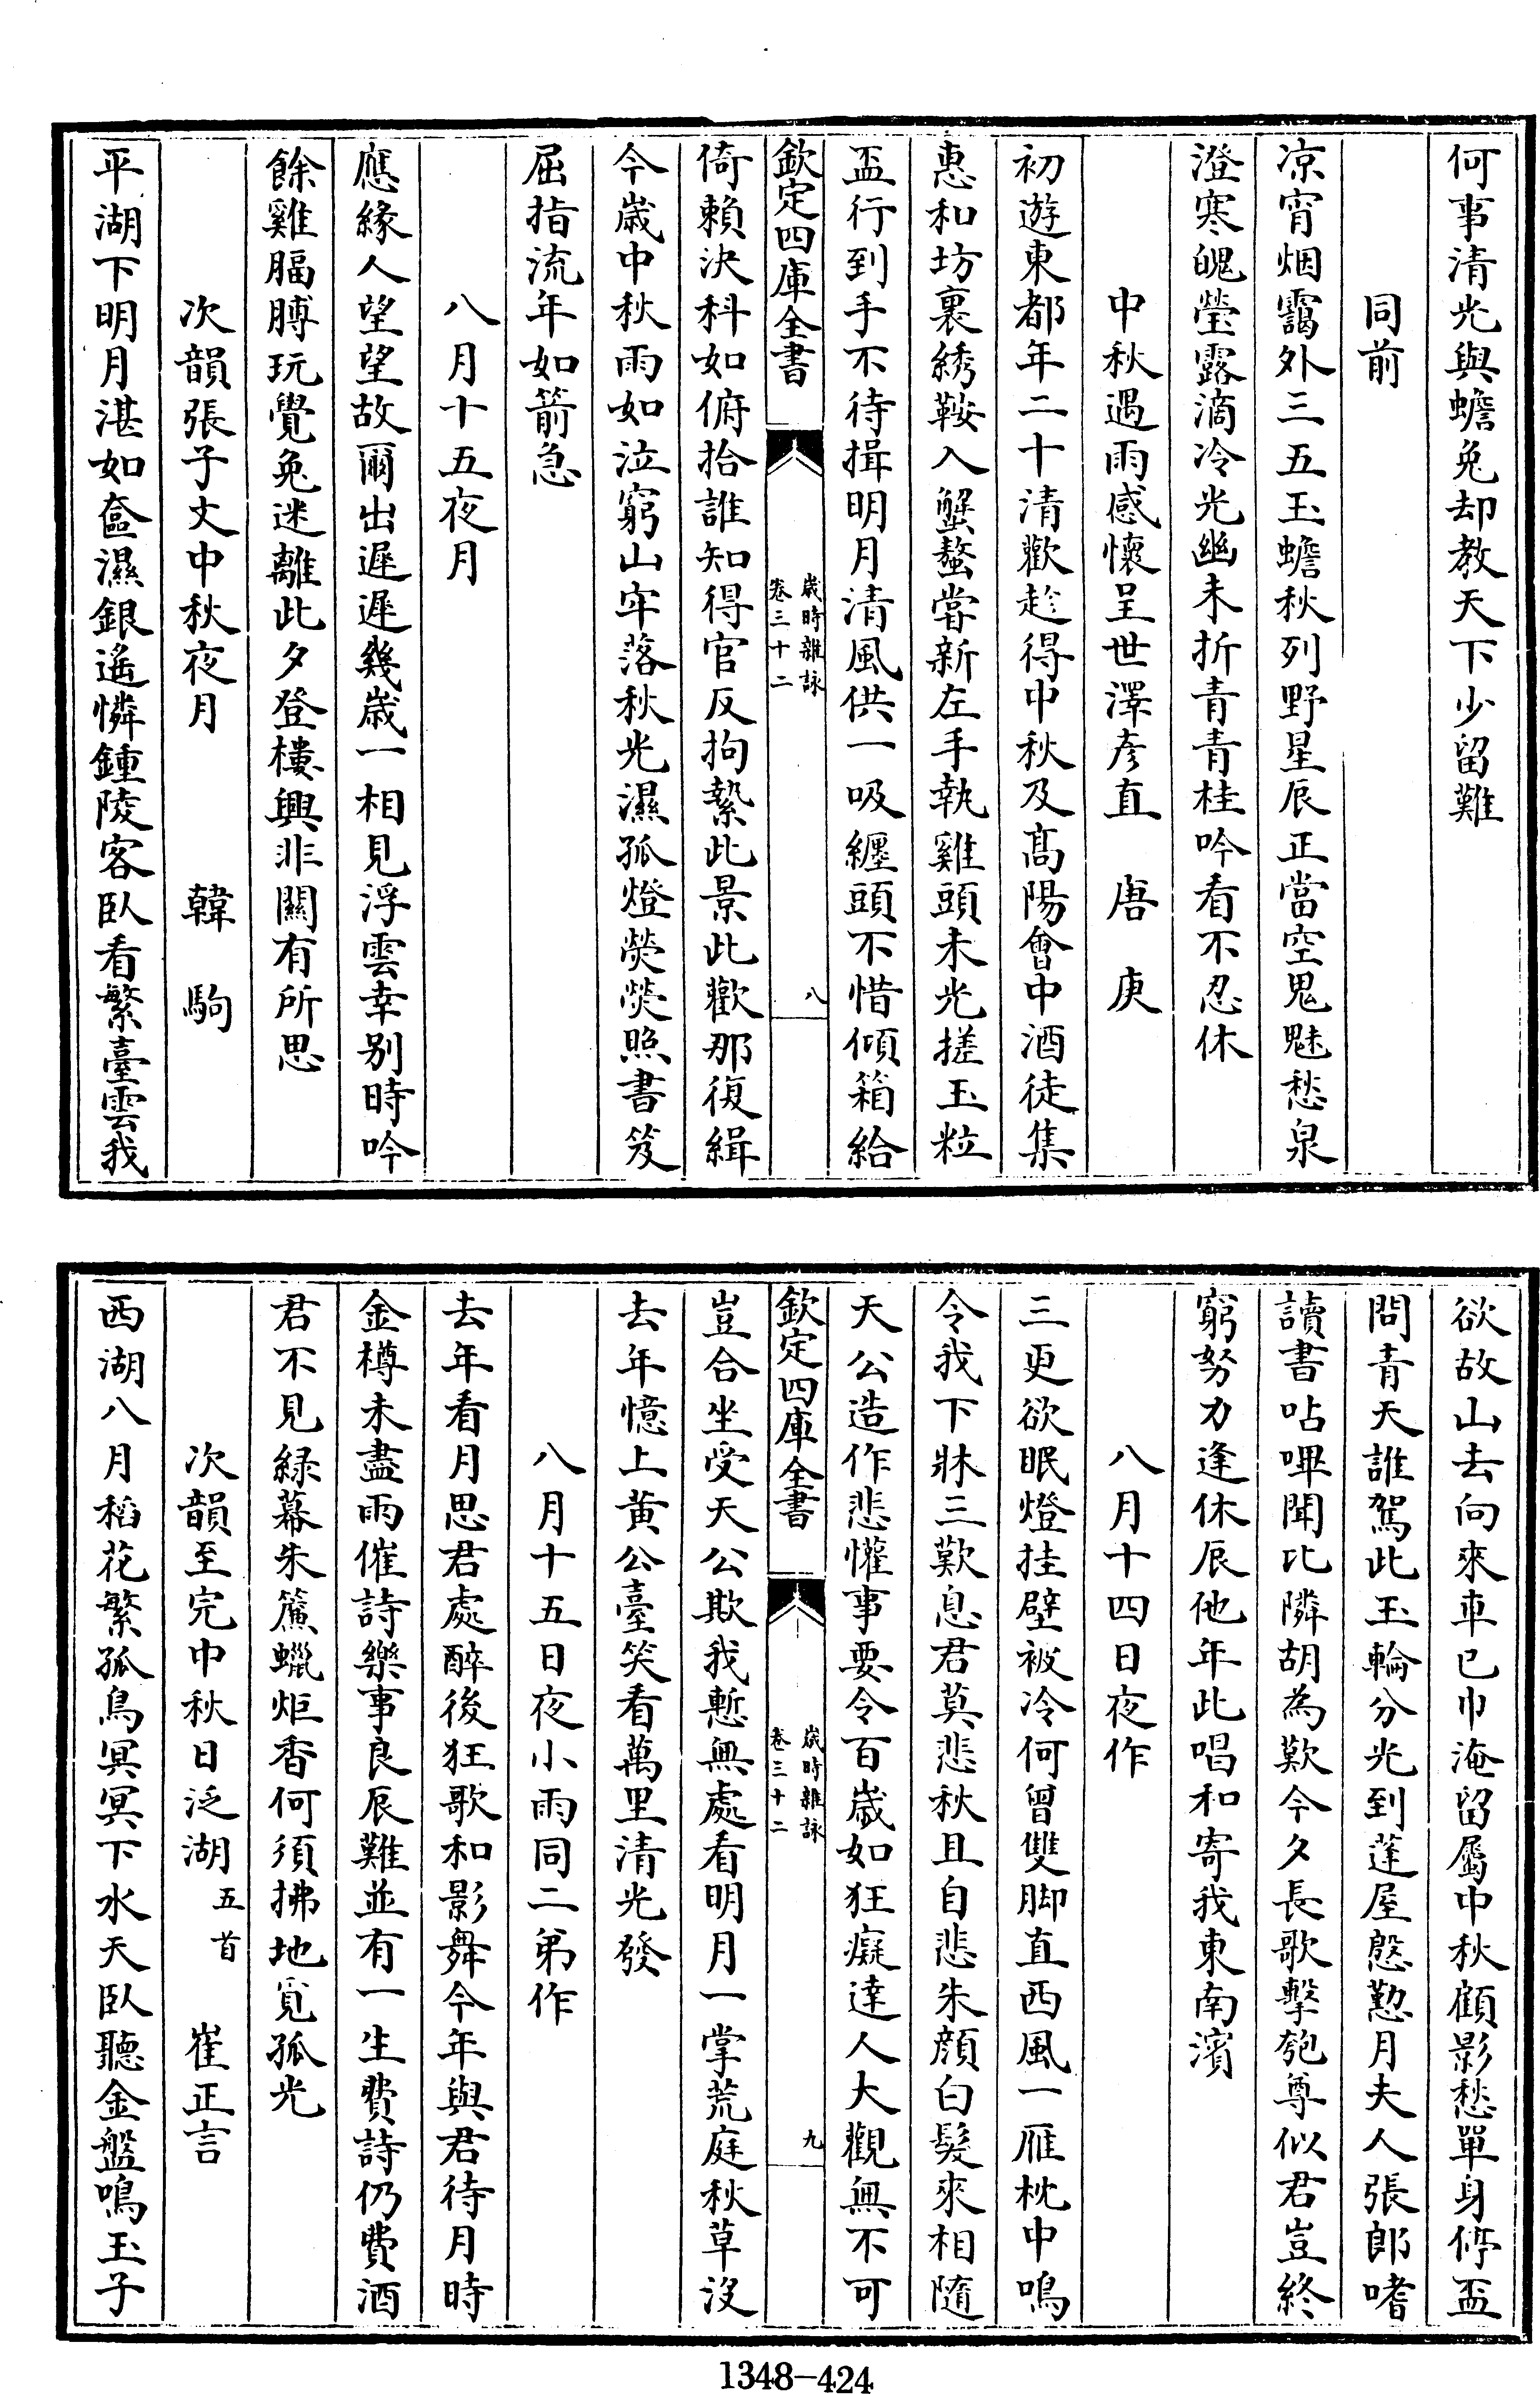 何事清光與蟾兔却教天下少留難
同前
凉宵烟靄外三五玉蟾秋列野星辰正當空鬼魅愁泉
澄寒魄瑩露滴冷光幽未折青青桂吟看不忍休
中秋遇雨感懷呈世澤彦直 唐庚
初遊東都年二十清歡趁得中秋及髙陽會中酒徒集
惠和坊裏綉鞍入蟹螯嘗新左手執雞頭未光搓玉粒
盃行到手不待揖明月清風供一吸纒頭不惜傾箱給
欽定四庫全書 歳時雜詠 卷三十二 八
倚賴決科如俯拾誰知得官反拘縶此景此歡那復緝
今歳中秋雨如泣窮山牢落秋光濕孤燈熒熒照書笈
屈指流年如箭急
八月十五夜月
應緣人望望故爾出遲遲幾歳一相見浮雲幸别時吟
餘雞腷膊玩覺兔迷離此夕登樓興非關有所思
次韻張子文中秋夜月 韓駒
平湖下明月湛如奩濕銀遙憐鍾陵客臥看繁臺雲我
欲故山去向來車已巾淹留屬中秋顧影愁單身停盃
問青天誰駕此玉輪分光到蓬屋慇懃月夫人張郎嗜
讀書呫嗶聞比隣胡為歎今夕長歌擊匏尊似君豈終
窮努力逢休辰他年此唱和寄我東南濱
八月十四日夜作
三更欲眠燈挂壁被冷何曾雙脚直西風一雁枕中鳴
令我下牀三歎息君莫悲秋且自悲朱顔白髮來相隨
天公造作悲懽事要令百歳如狂癡達人大觀無不可
欽定四庫全書 歳時雜詠 卷三十二 九
豈合坐受天公欺我慙無處看明月一掌荒庭秋草沒
去年憶上黄公臺笑看萬里清光發
八月十五日夜小雨同二弟作
去年看月思君處醉後狂歌和影舞今年與君待月時
金樽未盡雨催詩樂事良辰難並有一生費詩仍費酒
君不見緑幕朱簾蠟炬香何須拂地覓孤光
次韻至完中秋日泛湖 五首 崔正言
西湖八月稻花繁孤鳥冥冥下水天臥聽金盤鳴玉子
1348-424